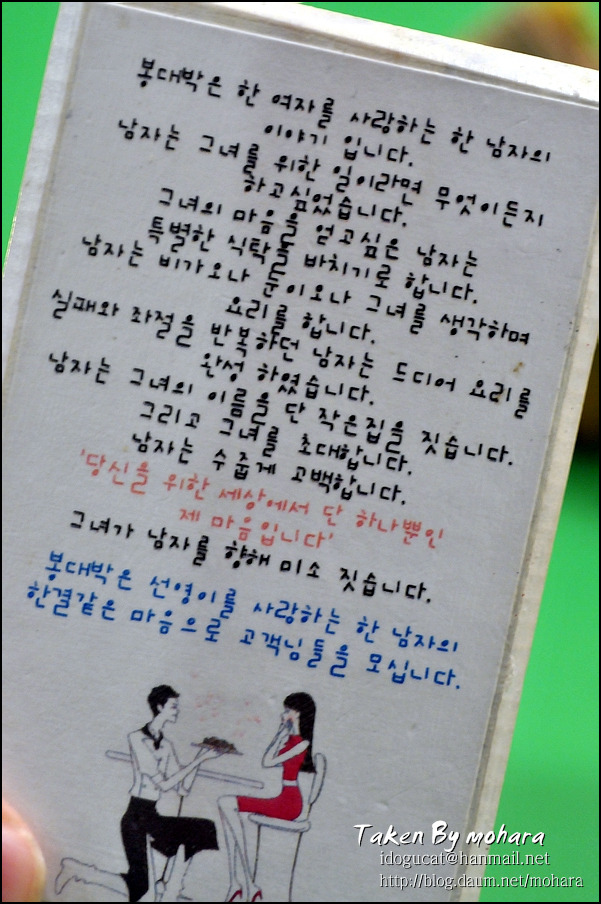 봉대박은 한 여자를 사랑하는 한 남자의
이야기 입니다.
남자는 그녀를 위한 일이라면 무엇이든지
하고싶었습니다.
그녀의 마음을 얻고싶은 남자는
특별한 식탁을 바치기로 합니다.
남자는 비가오나 눈이오나 그녀를 생각하며
요리를 합니다.
실패와 좌절을 반복하던 남자는 드디어 요리를
완성 하였습니다.
남자는 그녀의 이름을 단 작은집을 짓습니다.
그리고 그녀를 초대합니다.
남자는 수줍게 고백합니다.
'당신을 위한 세상에서 단 하나뿐인
제 마음입니다'
그녀가 남자를 향해 미소 짓습니다.
봉대박은 선영이를 사랑하는 한 남자의
한결같은 마음으로 고객님들을 모십니다.
Taken By mohara
idogucat@hanmail.net
http://blog.daum.net/mohara